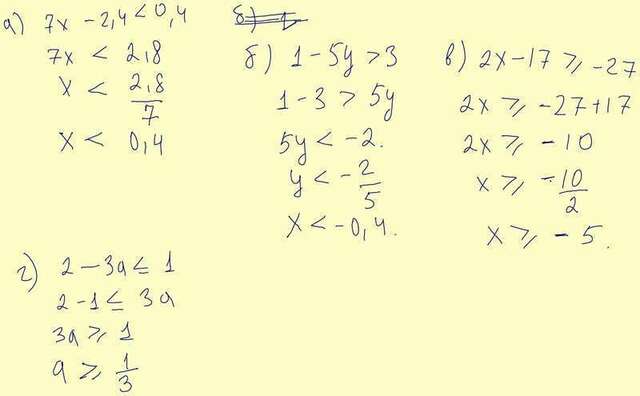 а) 7x - 2,4 < 0,4
7x < 2,8
x < 2,8/7
x < 0,4
б) 1 - 5y > 3
1 - 3 > 5y
5y < -2.
y < -2/5
x < -0,4.
в) 2x - 17 ⩾ -27
2x ⩾ -27+17
2x ⩾ -10
x ⩾ -10/2
x ⩾ -5.
г) 2 - 3a ≤ 1
2 - 1 ≤ 3a
3a ⩾ 1
a ⩾ 1/3